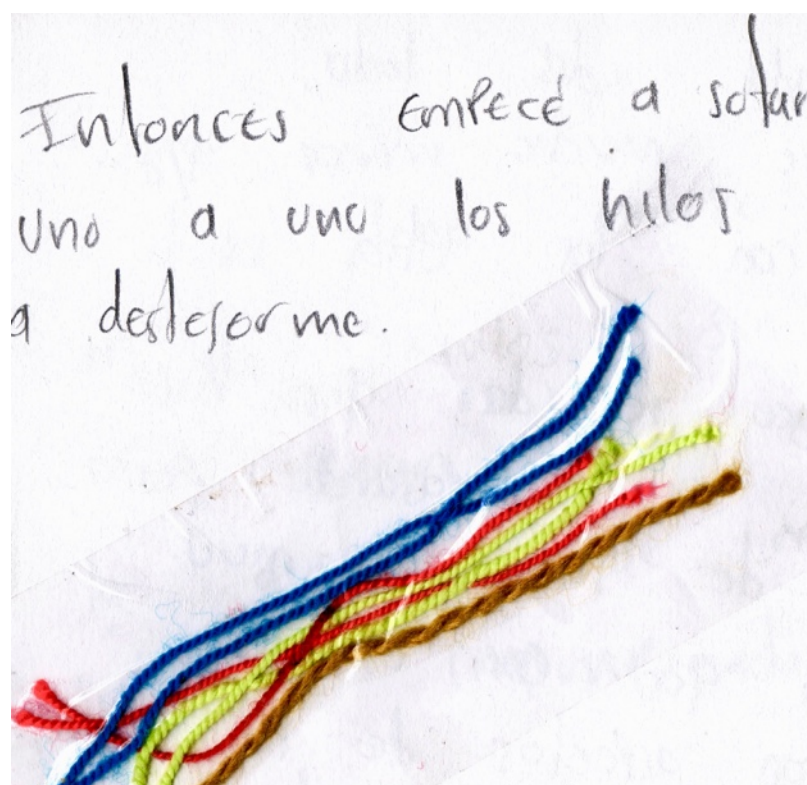 Entonces empecé a soltar
uno a uno los hilos
a destejerme.